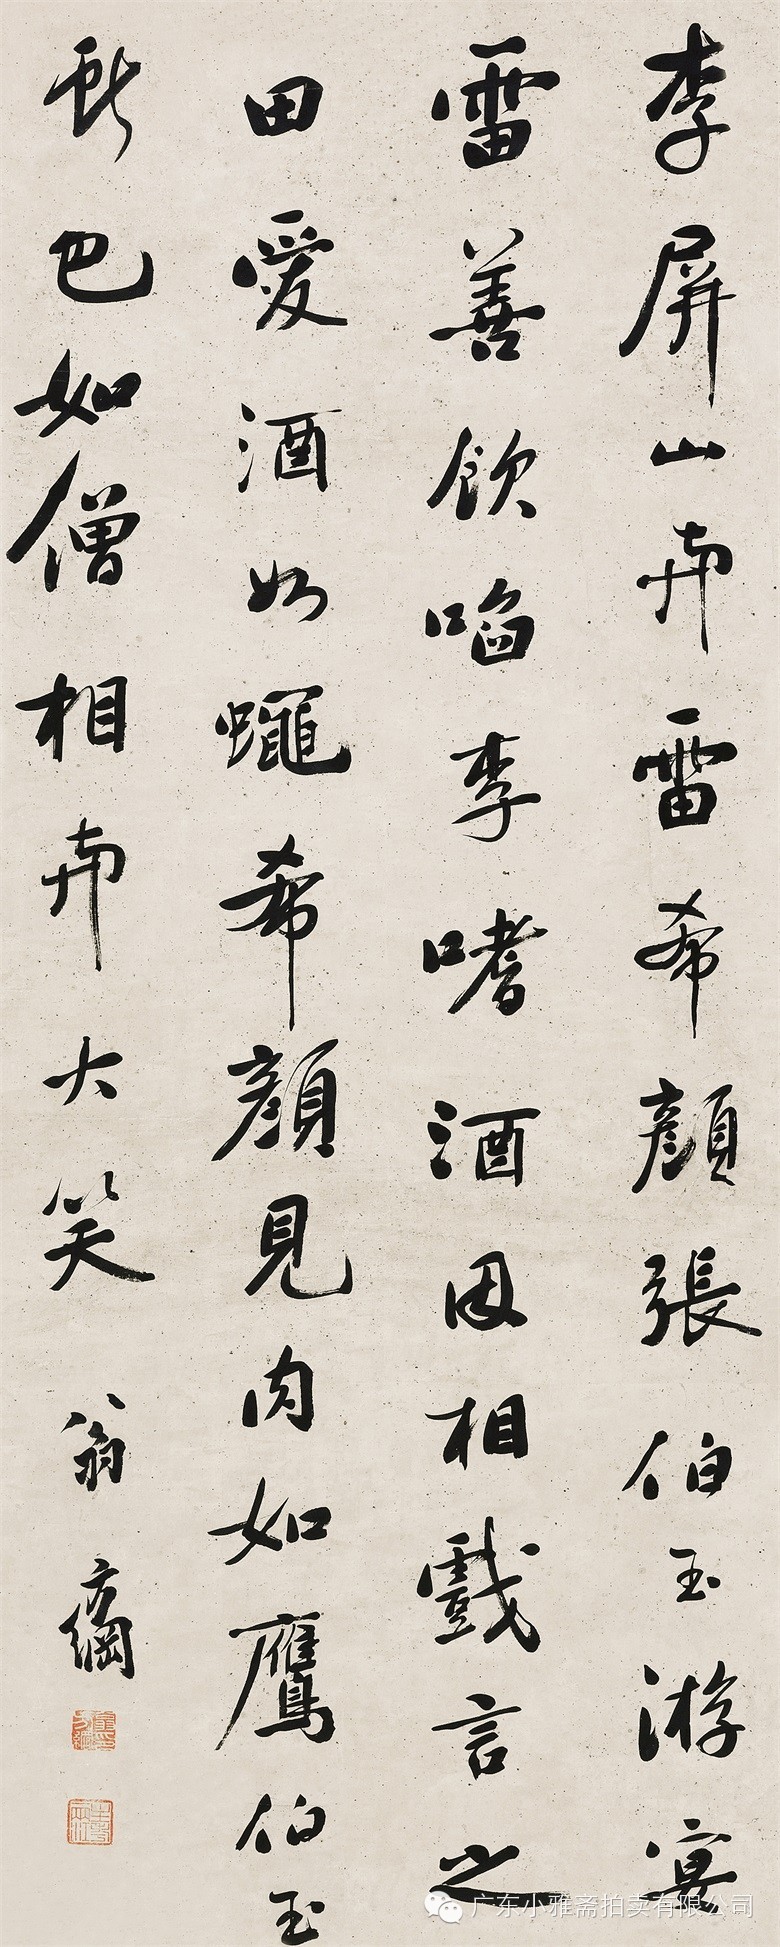 李屏山與雷希顏張伯玉游宴
雷善飲啗李嗜酒因相戲言之
田愛酒如蠅希顏見肉如鷹伯玉
巴如僧相與大笑
翁方綱
广东小雅斋拍卖有限公司